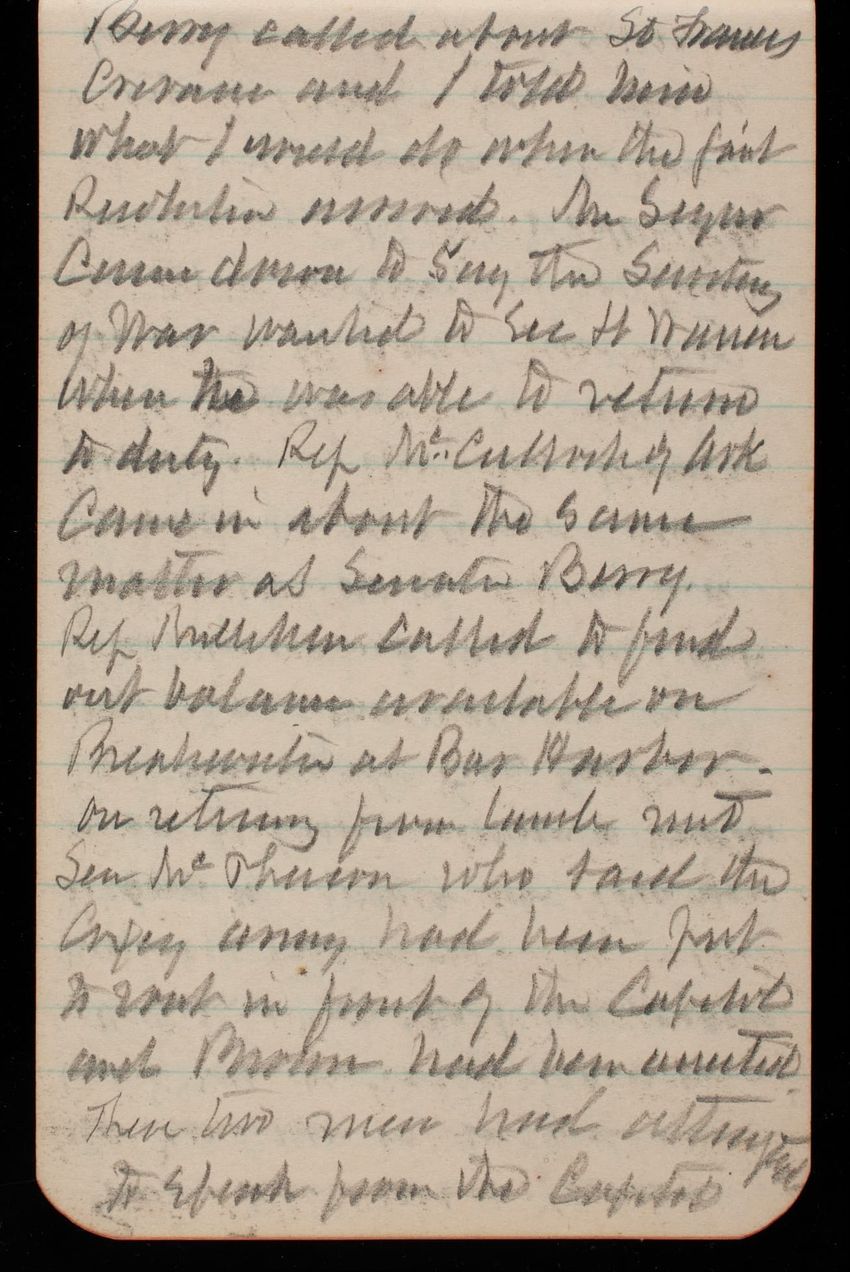 Berry called about St Francis
Crevasse and I told him
what I would do when the joint
Resolution arrived. Mr Segar
Came down to Say the Secretary
of War wanted to See Lt Warren
when he was able to return
to duty. Rep McCulloch of Ark
Came in about the Same
matter as Senator Berry.
Rep Milliken called to find
out balance available on
Breakwater at Bar Harbor.
on returning from lunch met
Sen McPherson who said the
Coxey army had been put
to rout in front of the Capitol
and Browne had been arrested
These two men had attempted
to Speak from the Capitol